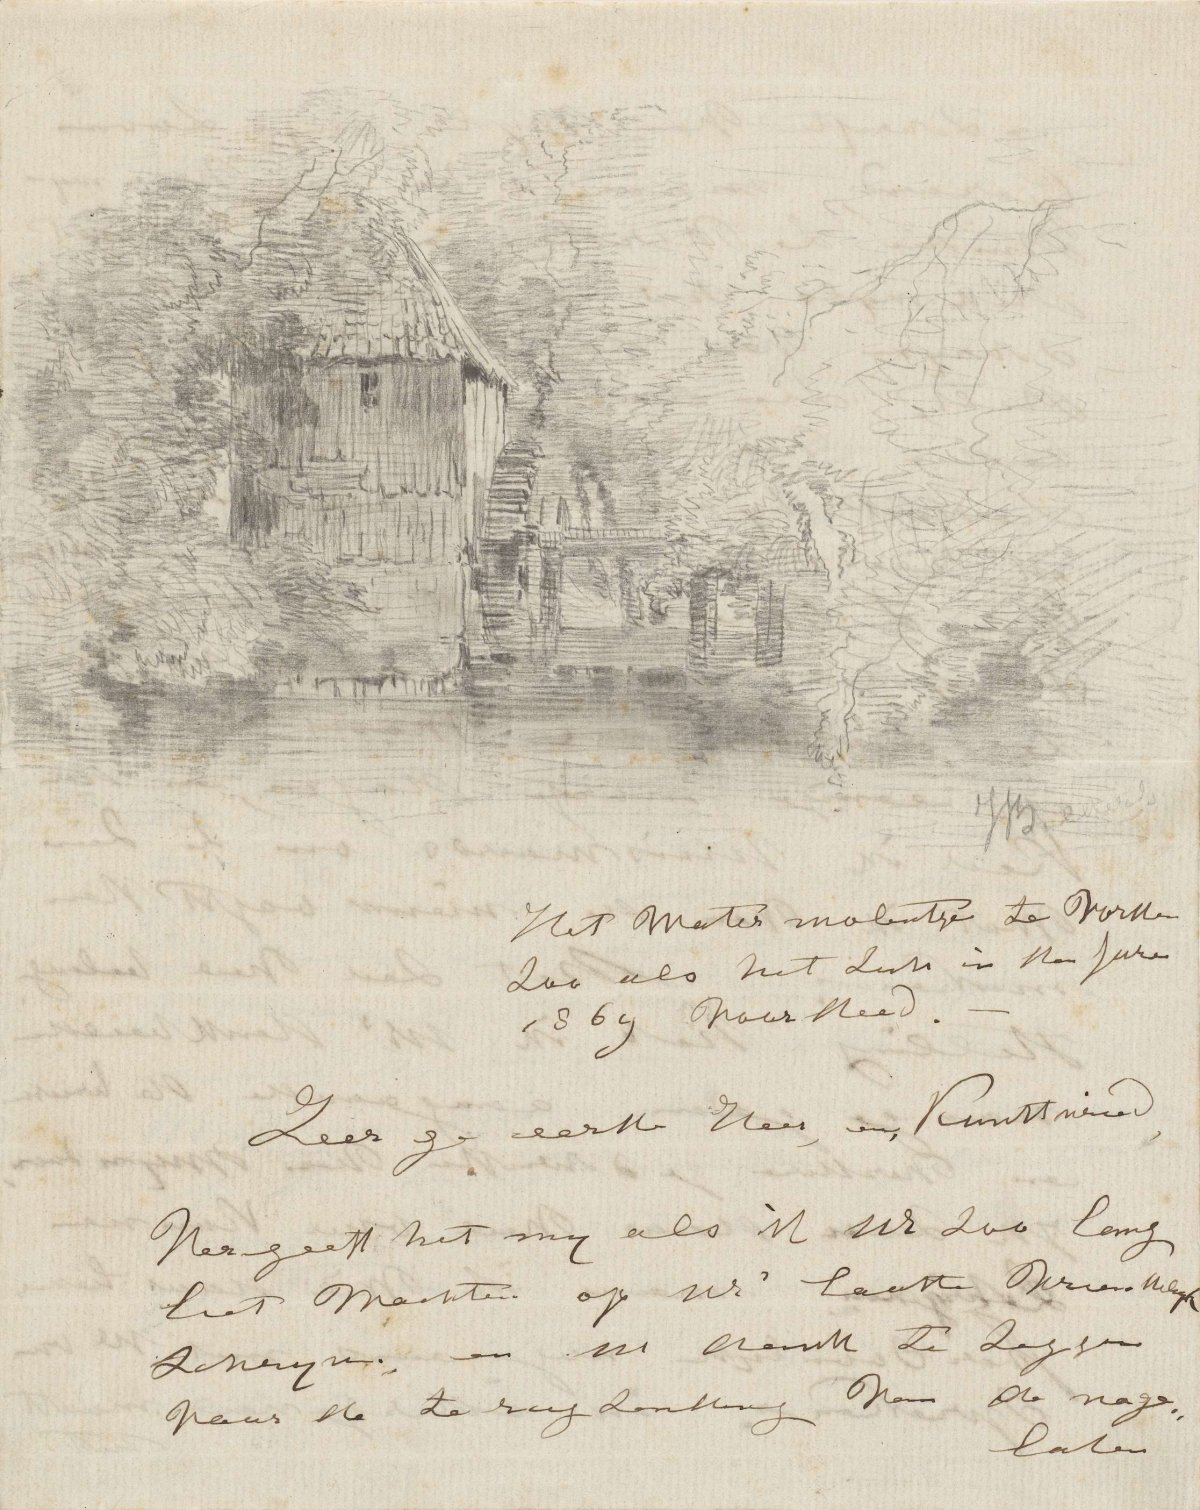 Het Water molentje te Vorden
zoo als het zich in den Jare
1869 voor deed. —
Zeer ge eerde Heer, en, Kunstvriend,
Vergeeft het my als ik UE zoo lang
liet Wachten op UE' laatste Vriendelyk
schryven, en UE dank te zeggen
voor de te rug zending van de nage„
laten